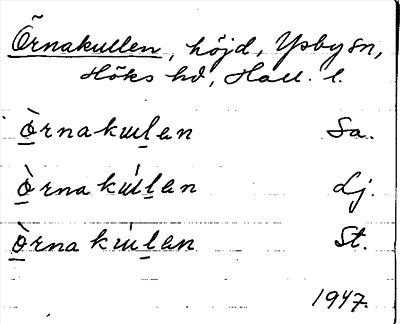 Örnakullen, höjd, Ysby sn,
Höks hd, Hall. l.
ò̲rnakɯl̲an Sa.
ò̲rnakɯ́l̲an Lj.
ò̲rnakɯ́l̲an St.
1947.